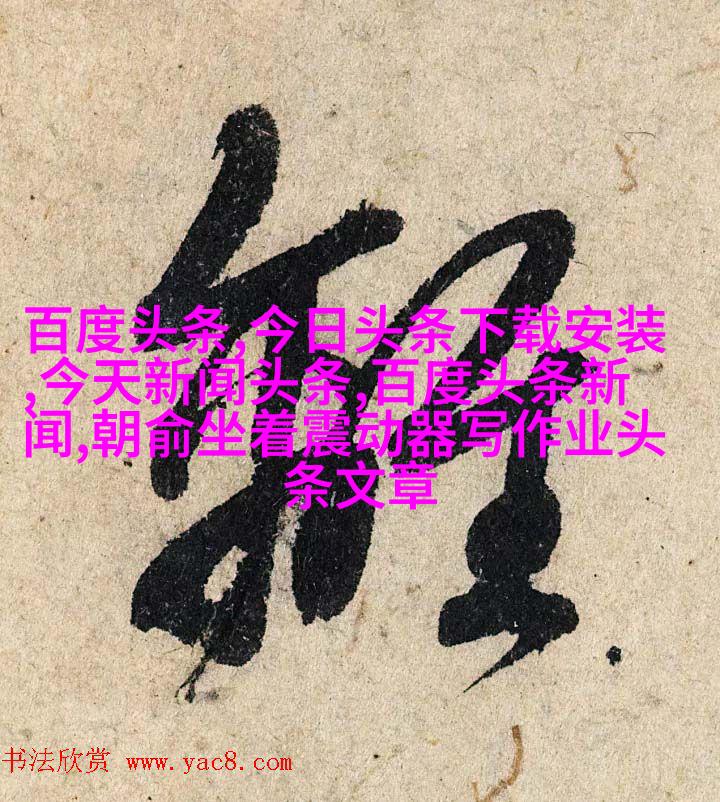 百度头条,今日头条下载安装
,今天新闻头条,百度头条新
闻,朝俞坐着震动器写作业头
条文章
书法欣赏 www.yac8.com